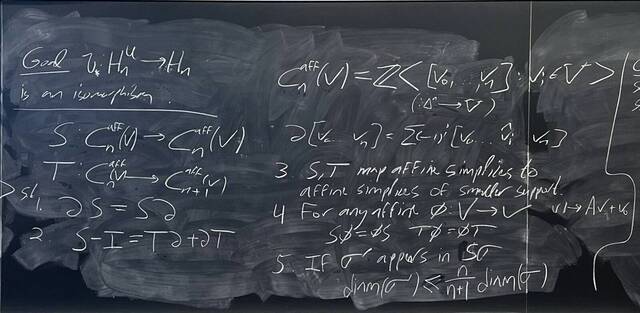 Goal ι_*: H_n^U → H_n
is an isomorphism.
S: C_n^aff(V) → C_n^aff(V)
T: C_n^aff(V) → C_{n+1}^aff(V)
st.
1. ∂S = S∂
2. S-I = T∂+∂T
C_n^aff(V) = ℤ< [v_0, ..., v_n] : v_i ∈ V >
(: Δ^n → V)
∂[v_0 ... v_n] = Σ(-1)^i [v_0 ... v̂_i ... v_n]
3 S,T map affine simplices to
affine simplices of smaller support.
4 For any affine ϕ: V → V v ↦ Av + v_0
Sϕ = ϕS Tϕ = ϕT
5. If σ' appears in Sσ
diam(σ') ≤ n/(n+1) diam(σ)